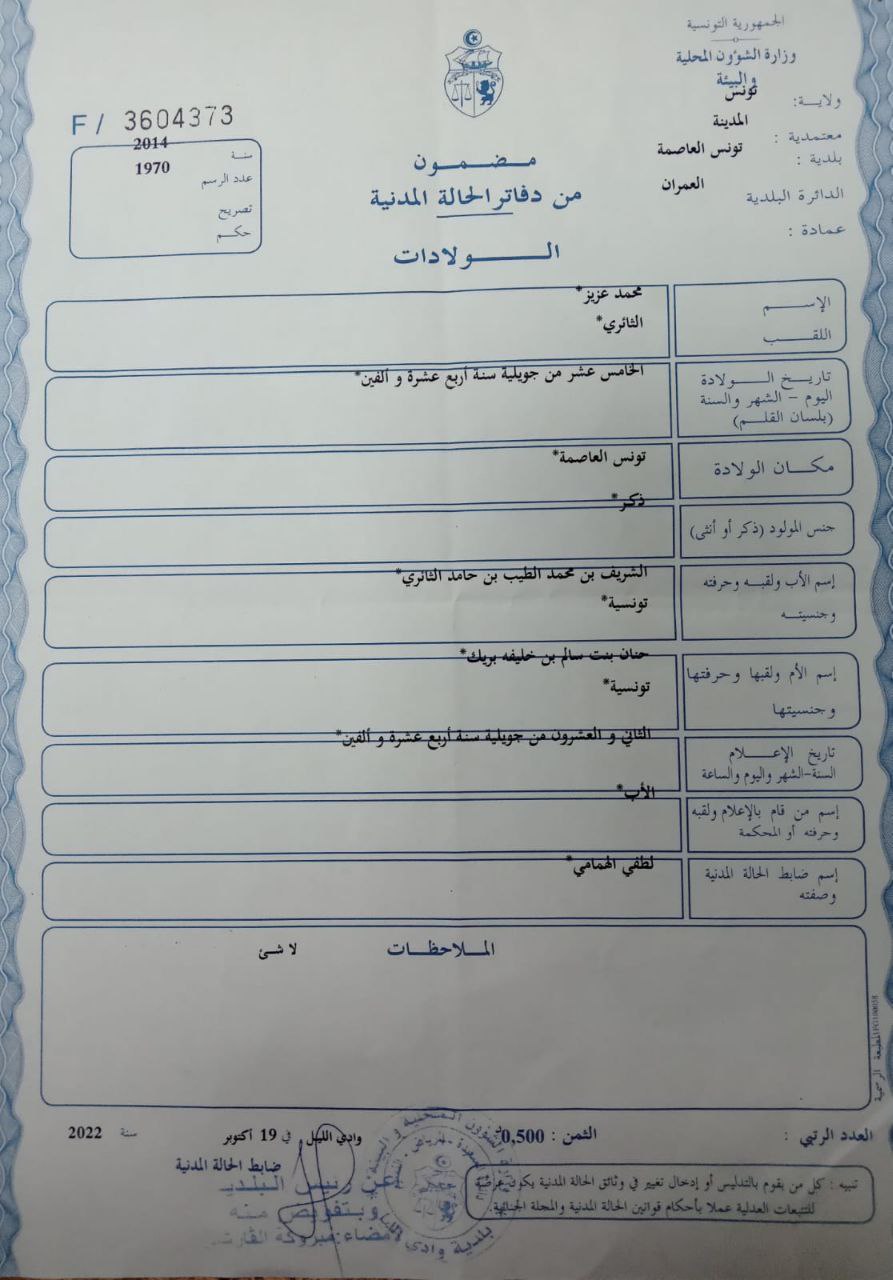 الجمهورية التونسية
وزارة الشؤون المحلية
والبيئة
ولاية: تونس
معتمدية : المدينة
بلدية : تونس العاصمة
الدائرة البلدية العمران
عمادة :
F/ 3604373
سنة 2014
عدد الرسم 1970
تصريح
حكم
مضمون
من دفاتر الحالة المدنية
الولادات
الإسم محمد عزيز*
اللقب الثائري*
تاريخ الولادة الخامس عشر من جويلية سنة أربع عشرة و ألفين*
اليوم - الشهر والسنة
(بلسان القلم)
مكان الولادة تونس العاصمة*
جنس المولود (ذكر أو أنثى) ذكر*
إسم الأب ولقبه وحرفته الشريف بن محمد الطيب بن حامد الثائري*
وجنسيته تونسية*
إسم الأم ولقبها وحرفتها حنان بنت سالم بن خليفه بريك*
وجنسيتها تونسية*
تاريخ الإعلام الثاني و العشرون من جويلية سنة أربع عشرة و ألفين*
السنة-الشهر واليوم والساعة
إسم من قام بالإعلام ولقبه الأب*
وحرفته أو المحكمة
إسم ضابط الحالة المدنية لطفي الهمامي*
وصفته
الملاحظات
لا شئ
المطبعة الرسمية
العدد الرتبي :
الثمن : 0,500
وادي الليل في 19 أكتوبر سنة 2022
ضابط الحالة المدنية
عن رئيس البلدية
وبتفويض منه
بلدية وادي الليل
تنبيه : كل من يقوم بالتدليس أو إدخال تغيير في وثائق الحالة المدنية يكون عرضة
للتتبعات العدلية عملا بأحكام قوانين الحالة المدنية والمجلة الجنائية.